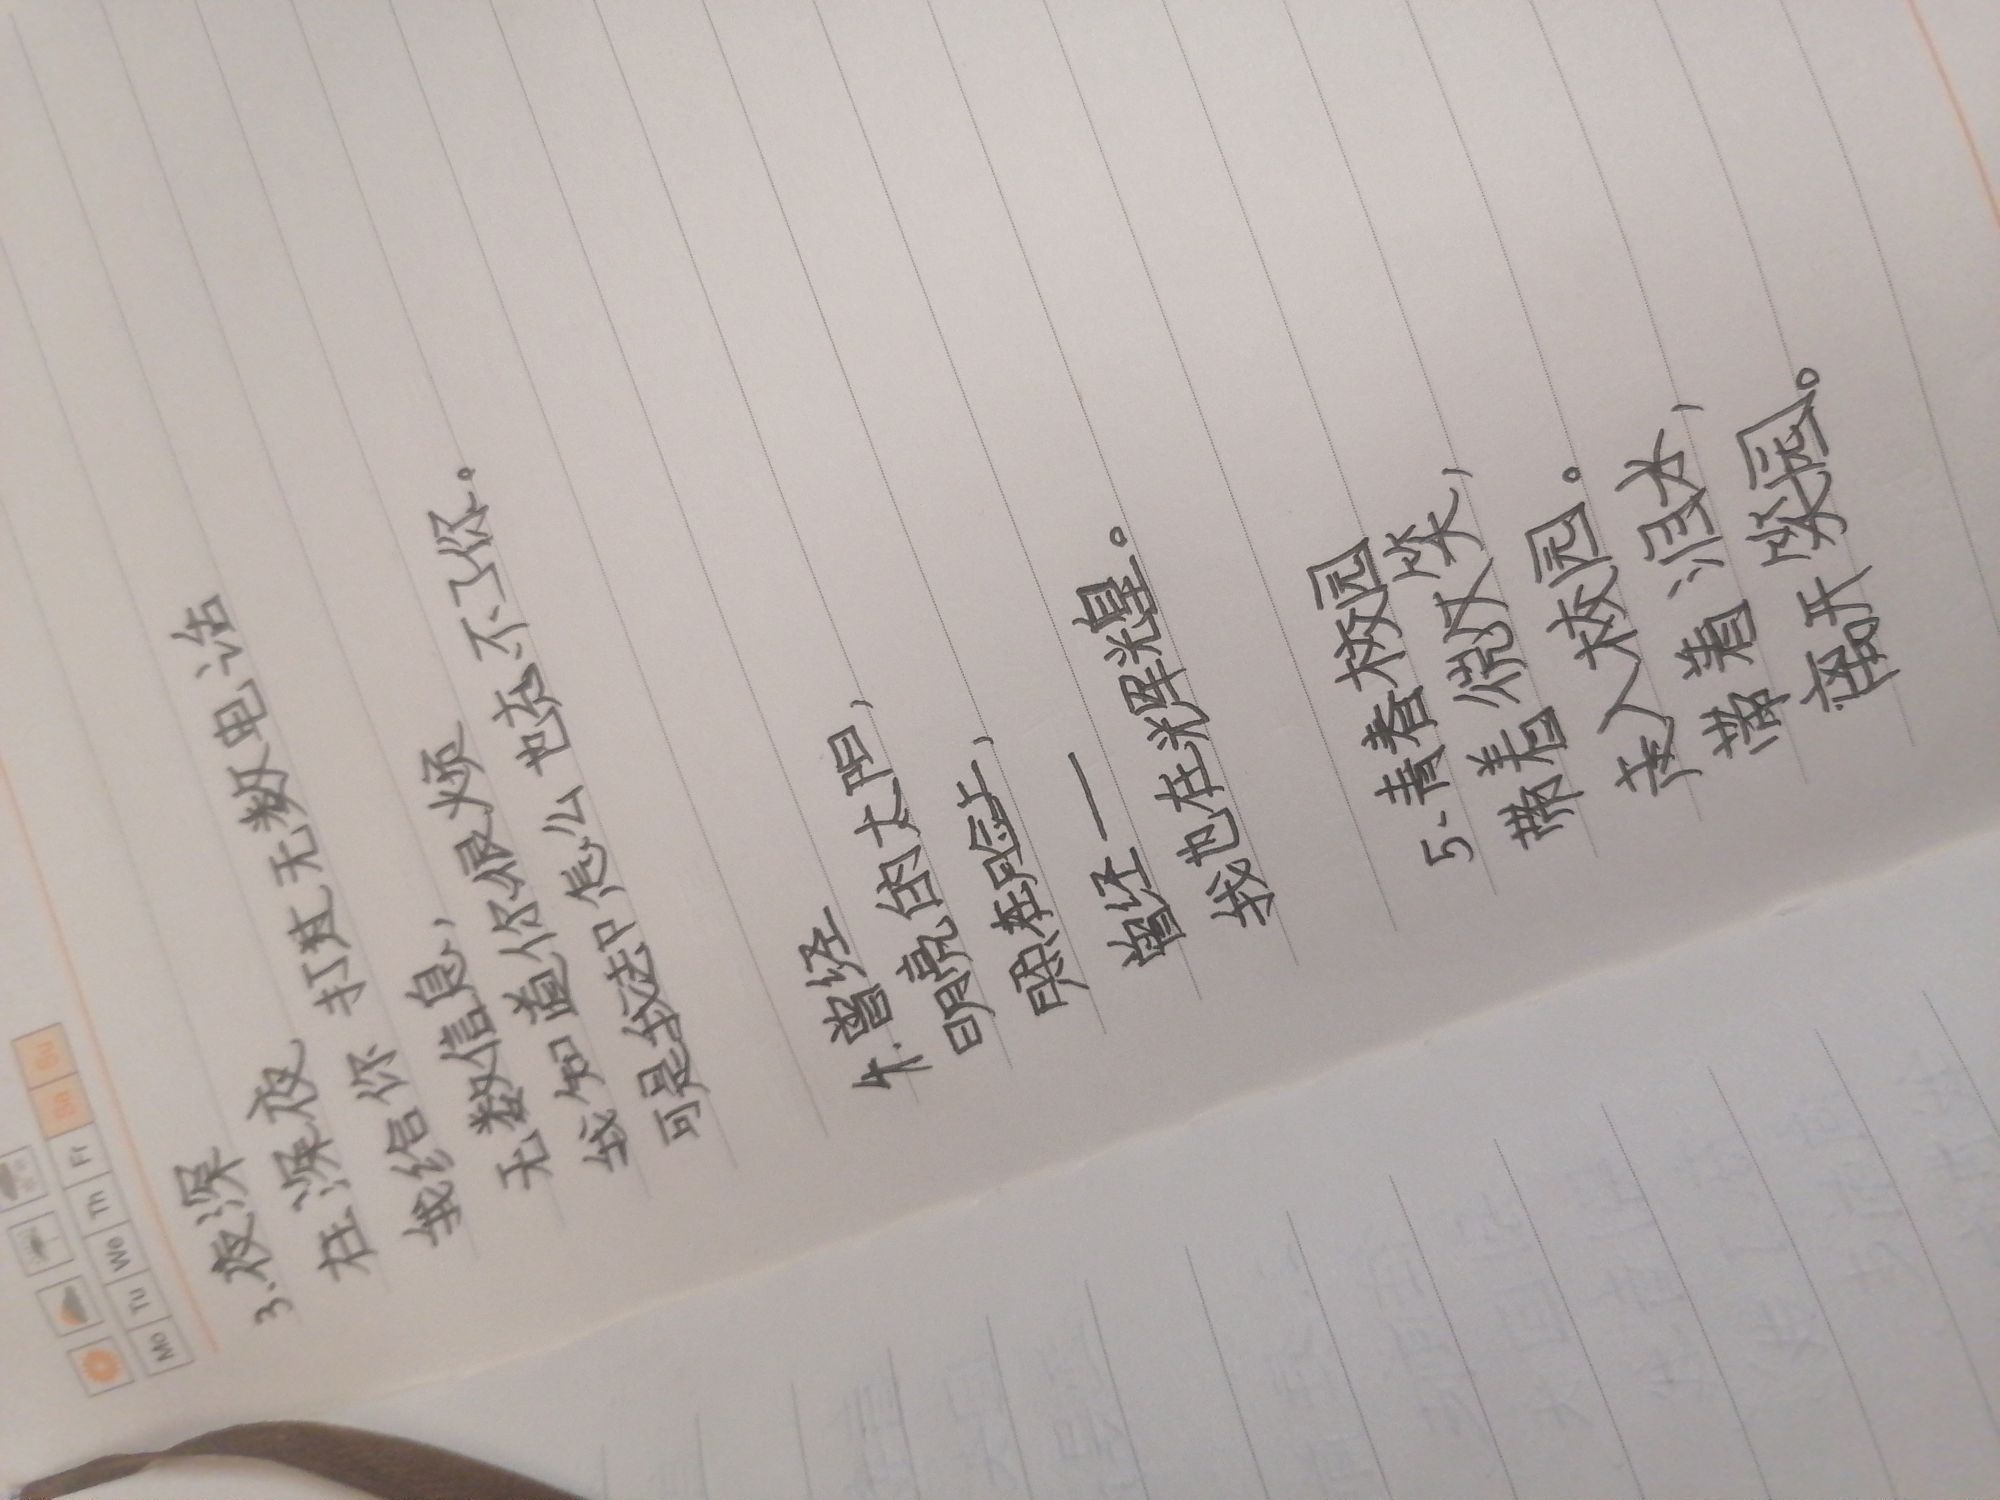 Mo Tu We Th Fr Sa Su
3.夜深
在深夜
我给你 打过无数电话
无数信息,
我知道你很烦
可是我法中怎么也忘不了你。
4.曾经
明亮的太阳,
照在脸上,
曾经——
我也在光辉光皇。
5、青春校园
带着微笑,
走入校园。
带着泪水,
离开 园。